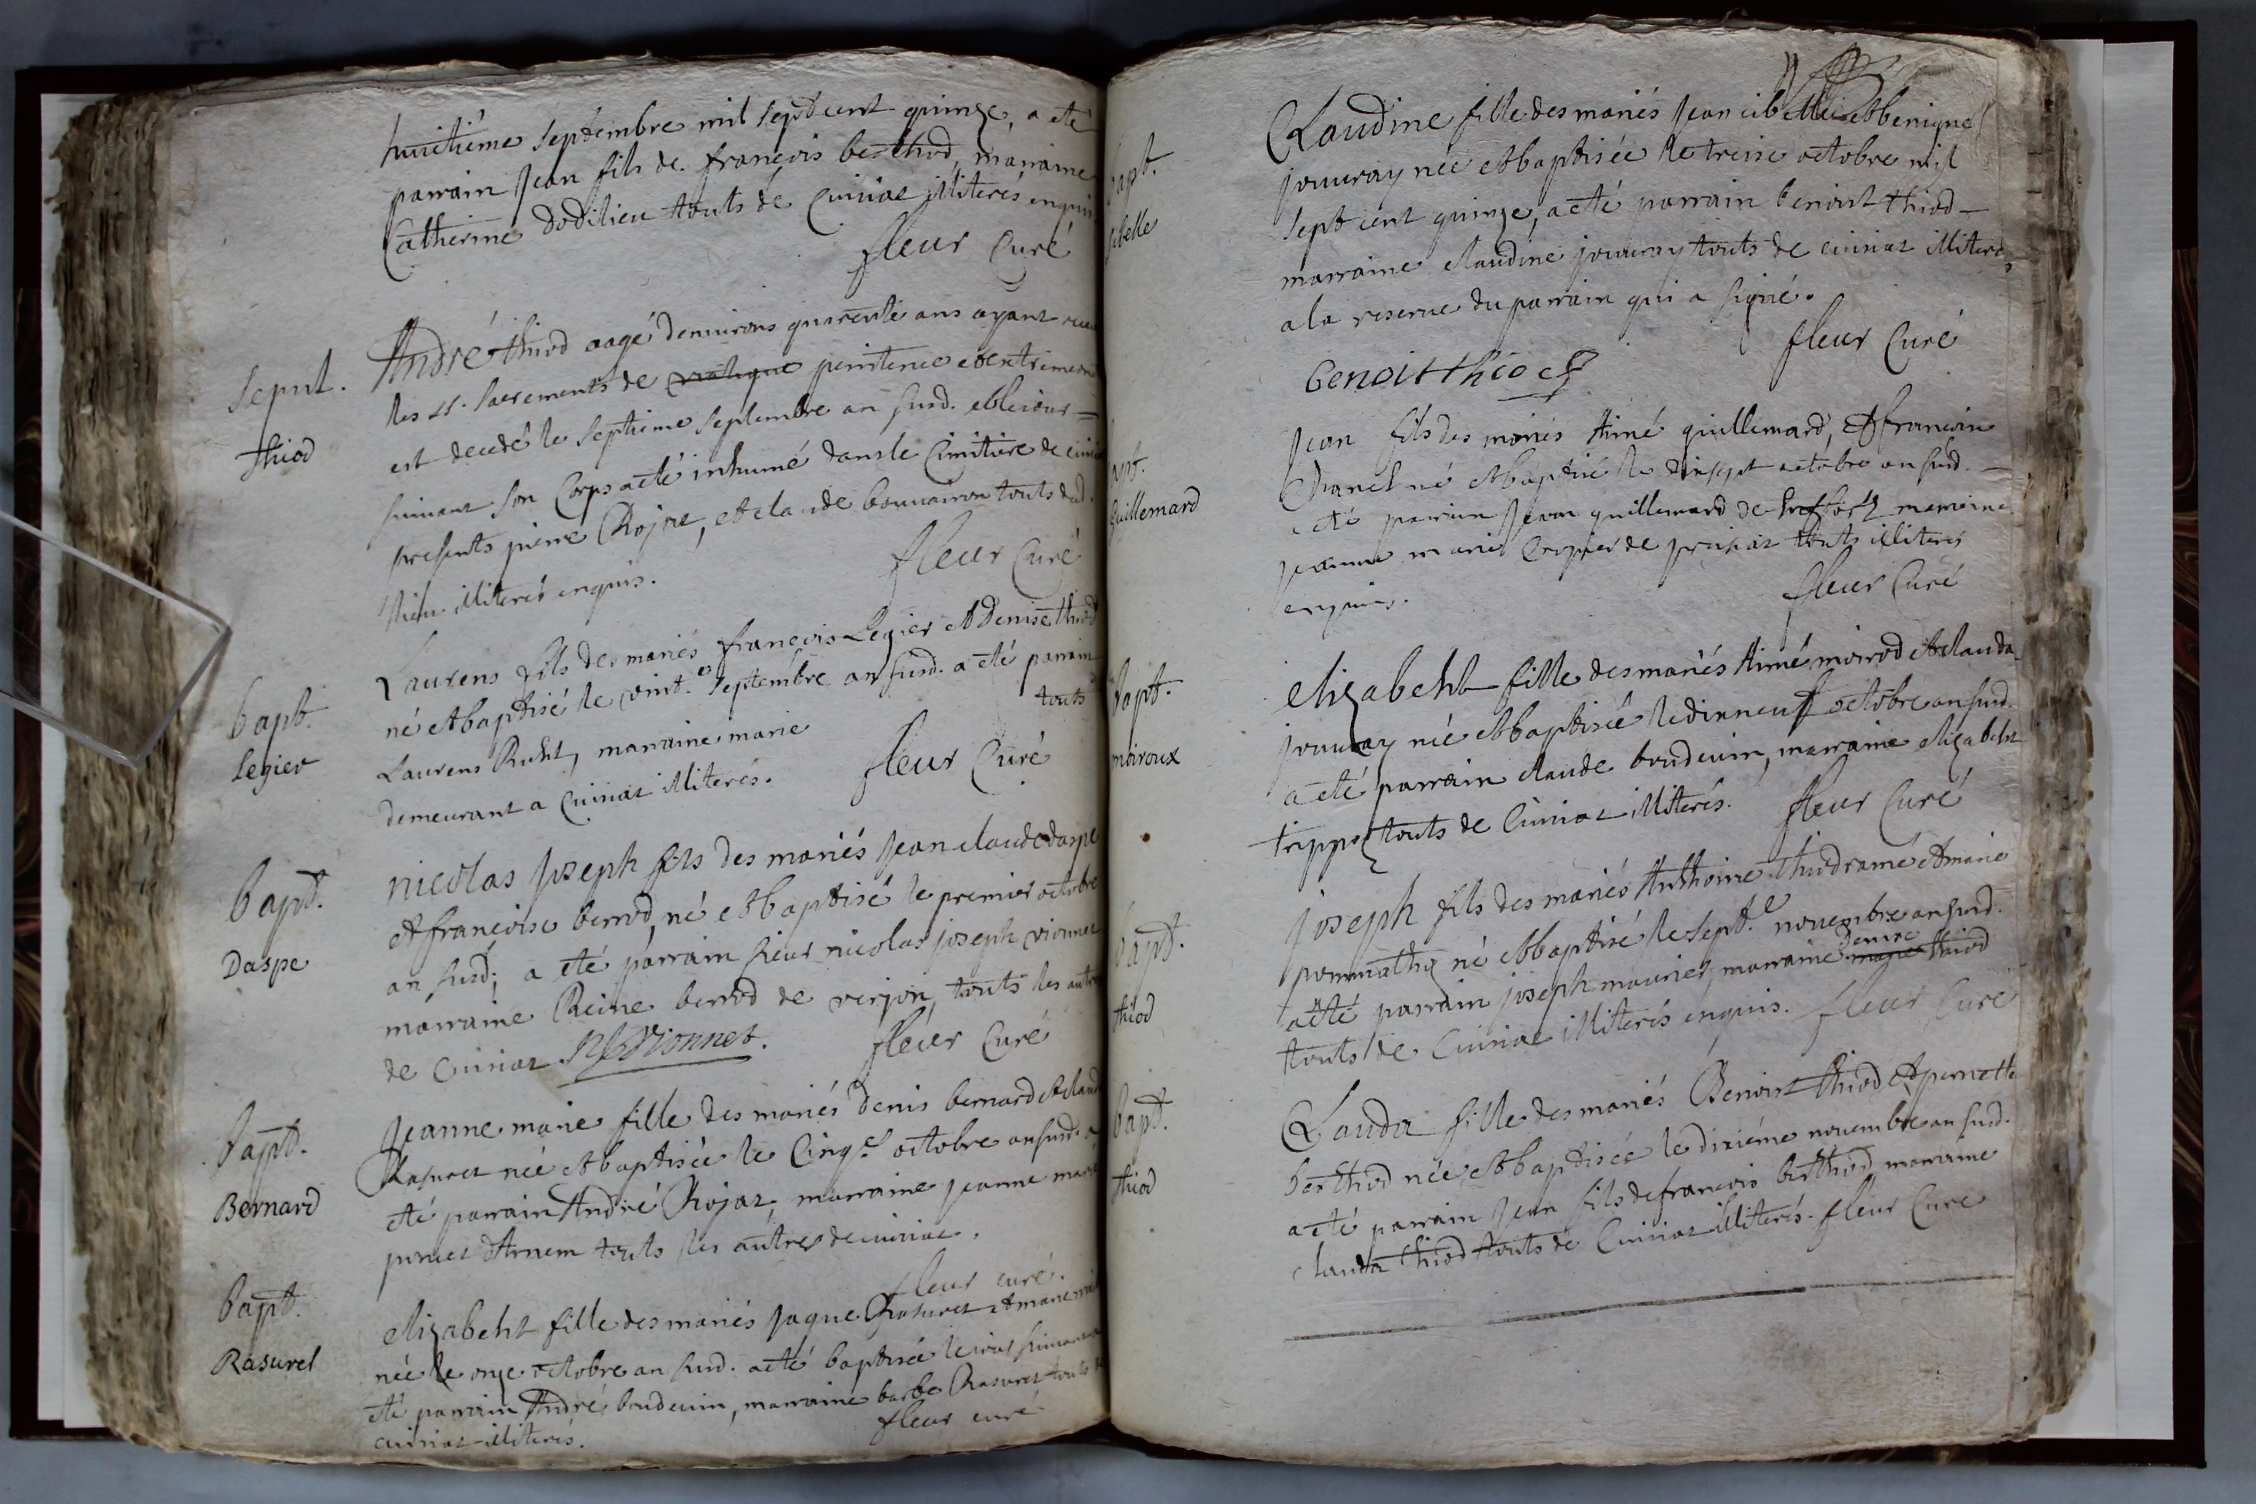 huitiéme septembre mil sept cent quinze, a eté
parrain Jean fils de francois berthod, marraine
Catherine Dodilieu touts de Cuisiat illiterés enquis
fleur Curé
Sepul.
thiod
André thiod aagé denuirons quarente ans ayant receu
les SS. sacrements de viatique penitence et extreme
est decedé le septieme septembre an susd. et le iour
suiuant son Corps a eté inhumé dans le Cimitiere de
presents pierre Rojat, et claude bouuairon touts dud.
lieu illiterés enquis.
fleur Curé
bapt.
Legier
Laurens fils des mariés francois Legier et Denise thiod
né et baptisé le vint.e septembre an susd. a eté parrain
Laurens Ruht, marraine marie touts
demeurant a Cuisiat illiterés.
fleur Curé
bapt.
Daspe
nicolas Joseph fils des mariés Jean claude daspe
et francoise berrod, né et baptisé le premier octobre
an susd; a eté parrain sieur nicolas joseph vionnet
marraine Reine berrod de verjon, touts les autres
de Cuisiat NJVionnet.
fleur Curé
bapt.
Bernard
Jeanne marie fille des mariés Denis bernard et claud
Rasuret née et baptisée le Cinq.e octobre an susd. a
eté parrain André Rojat, marraine jeanne marie
poncet d'Arnem touts les autres de cuisiat.
fleur curé.
bapt.
Rasurel
elizabeht fille des mariés Jaque Rasuret et marie
née le onze octobre an susd. a eté baptisée le iour suiuant
eté parrain André boudeuin, marraine barbe Rasuret touts de
cuisiat illiterés.
fleur curé
bapt.
sibelle
Claudine fille des mariés Jean cibelle et benigne
jouuray née et baptisée le treize octobre mil
sept cent quinze, a eté parrain benoist thiod
marraine claudine jouuray touts de cuisiat illiterés
a la reserue du parrain qui a signé.
fleur Curé
benoit thiod
bapt.
Guillemard
Jean fils des mariés Aimé guillemard, et francoise
Chanel né et baptisé le dixsept octobre an susd.
eté parrain Jean guillemard de treffort marraine
jeanne marie de touts illiterés
enquis.
fleur Curé
bapt.
moiroux
elizabeht fille des mariés Aimé moirod et clauda
jouuray née et baptisée le dixneuf octobre an susd.
a eté parrain claude boudeuin, marraine elizabeht
trippoz touts de Cuisiat illiterés.
fleur Curé
bapt.
thiod
joseph fils des mariés Anthoine thiod ramé et marie
pommathy né et baptisé le sept.e nouembre an susd.
a eté parrain joseph maurier, marraine marie denise thiod
touts de Cuisiat illiterés enquis. fleur Curé
bapt.
thiod
Clauda fille des mariés Benoist thiod et pernette
berthod née et baptisée le dixiéme nouembre an susd.
a eté parrain Jean fils de francois berthod marraine
clauda thiod touts de Cuisiat illiterés. fleur Curé